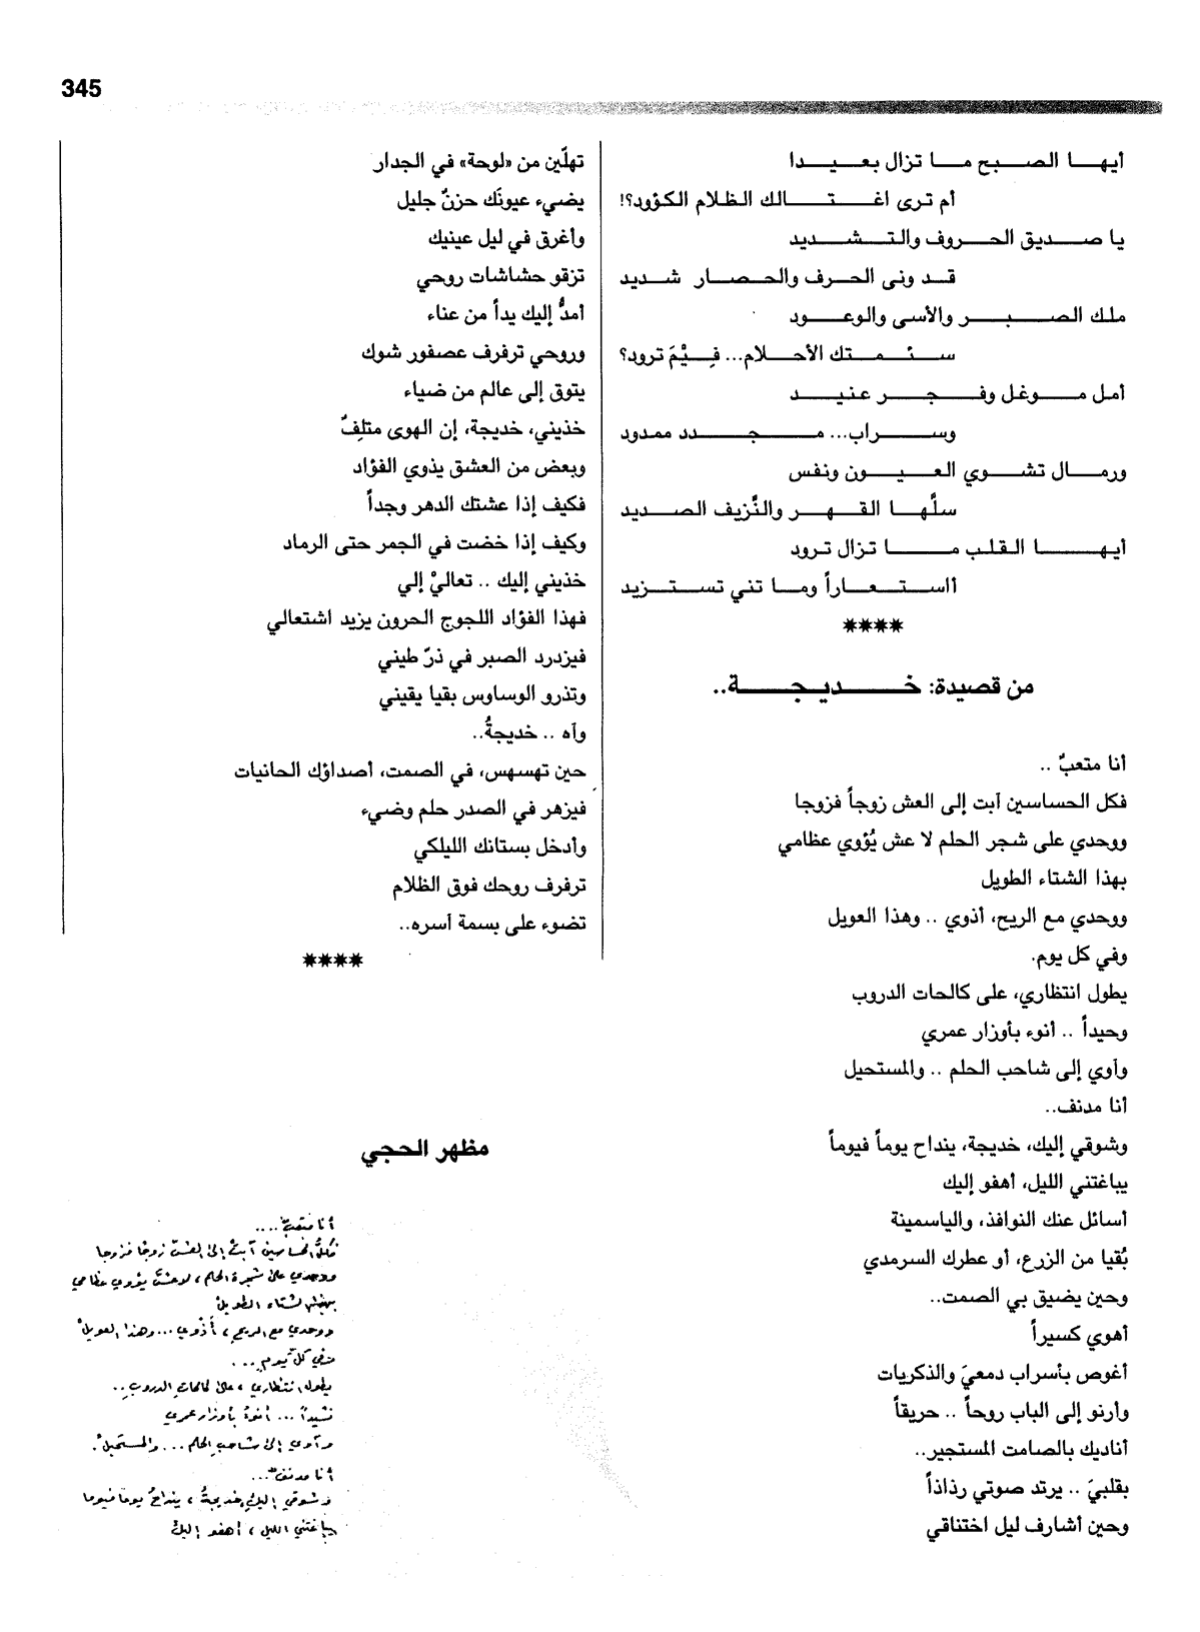 345
أيها الصبح ما تزال بعيدا
أم ترى اغتالك الظلام الكؤود؟!
يا صديق الحروف والتشديد
قد ونى الحرف والحصار شديد
ملك الصبر والأسى والوعود
سئمتك الأحلام... فِيْمَ ترود؟
أمل موغل وفجر عنيد
وسراب... مجدد ممدود
ورمال تشوي العيون ونفس
سلَّها القهر والنَّزيف الصديد
أيها القلب ما تزال ترود
أاستعاراً وما تني تستزيد
****
من قصيدة: خديجة..
أنا متعبٌ ..
فكل الحساسين آبت إلى العش زوجاً فزوجا
ووحدي على شجر الحلم لا عش يُؤوي عظامي
بهذا الشتاء الطويل
ووحدي مع الريح، أذوي .. وهذا العويل
وفي كل يوم.
يطول انتظاري، على كالحات الدروب
وحيداً .. أنوء بأوزار عمري
وآوي إلى شاحب الحلم .. والمستحيل
أنا مدنف..
وشوقي إليك، خديجة، ينداح يوماً فيوماً
يباغتني الليل، أهفو إليك
أسائل عنك النوافذ، والياسمينة
بُقيا من الزرع، أو عطرك السرمدي
وحين يضيق بي الصمت..
أهوي كسيراً
أغوص بأسراب دمعيَ والذكريات
وأرنو إلى الباب روحاً .. حريقاً
أناديك بالصامت المستجير..
بقلبيَ .. يرتد صوتي رذاذاً
وحين أشارف ليل اختناقي
تهلّين من «لوحة» في الجدار
يضيء عيونَك حزنٌ جليل
وأغرق في ليل عينيك
تزقو حشاشات روحي
أمدُّ إليك يدأ من عناء
وروحي ترفرف عصفور شوك
يتوق إلى عالم من ضياء
خذيني، خديجة، إن الهوى متلِفٌ
وبعض من العشق يذوي الفؤاد
فكيف إذا عشتك الدهر وجداً
وكيف إذا خضت في الجمر حتى الرماد
خذيني إليك .. تعاليْ إلي
فهذا الفؤاد اللجوج الحرون يزيد اشتعالي
فيزدرد الصبر في ذرّ طيني
وتذرو الوساوس بقيا يقيني
وآه .. خديجةُ..
حين تهسهس، في الصمت، أصداؤك الحانيات
فيزهر في الصدر حلم وضيء
وأدخل بستانك الليلكي
ترفرف روحك فوق الظلام
تضوء على بسمة آسره..
****
مظهر الحجي
أنا متعبٌ ....
فكلُّ الحساسين آبتْ إلى العشّ زوجًا فزوجا
ووحدي على شجرة الحلم، لا عشّ يؤوي عظامي
بهذا الشتاء الطويلْ
ووحدي مع الريحِ، أذوي ... وهذا العويلْ
وفي كلّ يومٍ ...
يطول انتظاري، على كالحاتِ الدروبِ..
... أنوءُ بأوزار عمري
وآوي إلى شاحبِ الحلم ... والمستحيلْ.
أنا مدنفٌ ...
وشوقي إليكِ، خديجةُ، ينداحُ يوما فيوما
يباغتني الليل، أهفو إليكْ